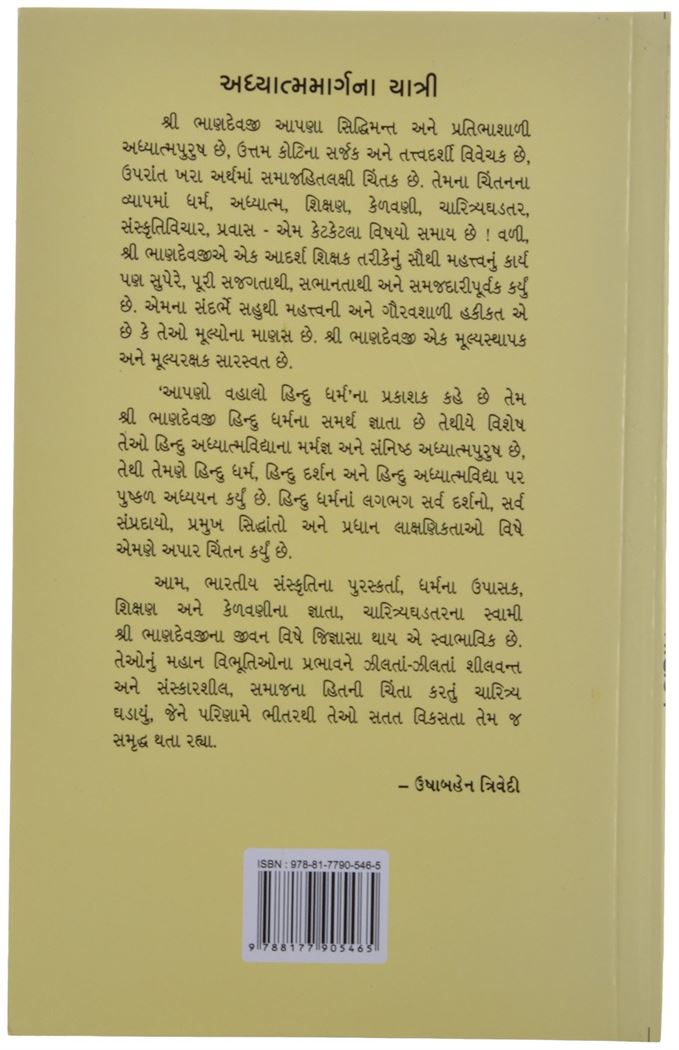 અધ્યાત્મમાર્ગના યાત્રી
શ્રી ભાણદેવજી આપણા સિદ્ધિમન્ત અને પ્રતિભાશાળી
અધ્યાત્મપુરુષ છે, ઉત્તમ કોટિના સર્જક અને તત્ત્વદર્શી વિવેચક છે,
ઉપરાંત ખરા અર્થમાં સમાજહિતલક્ષી ચિંતક છે. તેમના ચિંતનના
વ્યાપમાં ધર્મ, અધ્યાત્મ, શિક્ષણ, કેળવણી, ચારિત્ર્યઘડતર,
સંસ્કૃતિવિચાર, પ્રવાસ - એમ કેટકેટલા વિષયો સમાય છે ! વળી,
શ્રી ભાણદેવજીએ એક આદર્શ શિક્ષક તરીકેનું સૌથી મહત્ત્વનું કાર્ય
પણ સુપેરે, પૂરી સજગતાથી, સભાનતાથી અને સમજદારીપૂર્વક કર્યું
છે. એમના સંદર્ભે સહુથી મહત્ત્વની અને ગૌરવશાળી હકીકત એ
છે કે તેઓ મૂલ્યોના માણસ છે. શ્રી ભાણદેવજી એક મૂલ્યસ્થાપક
અને મૂલ્યરક્ષક સારસ્વત છે.
‘આપણો વહાલો હિન્દુ ધર્મ’ના પ્રકાશક કહે છે તેમ
શ્રી ભાણદેવજી હિન્દુ ધર્મના સમર્થ જ્ઞાતા છે તેથીયે વિશેષ
તેઓ હિન્દુ અધ્યાત્મવિદ્યાના મર્મજ્ઞ અને સંનિષ્ઠ અધ્યાત્મપુરુષ છે,
તેથી તેમણે હિન્દુ ધર્મ, હિન્દુ દર્શન અને હિન્દુ અધ્યાત્મવિદ્યા પર
પુષ્કળ અધ્યયન કર્યું છે. હિન્દુ ધર્મનાં લગભગ સર્વ દર્શનો, સર્વ
સંપ્રદાયો, પ્રમુખ સિદ્ધાંતો અને પ્રધાન લાક્ષણિકતાઓ વિષે
એમણે અપાર ચિંતન કર્યું છે.
આમ, ભારતીય સંસ્કૃતિના પુરસ્કર્તા, ધર્મના ઉપાસક,
શિક્ષણ અને કેળવણીના જ્ઞાતા, ચારિત્ર્યઘડતરના સ્વામી
શ્રી ભાણદેવજીના જીવન વિષે જિજ્ઞાસા થાય એ સ્વાભાવિક છે.
તેઓનું મહાન વિભૂતિઓના પ્રભાવને ઝીલતાં-ઝીલતાં શીલવન્ત
અને સંસ્કારશીલ, સમાજના હિતની ચિંતા કરતું ચારિત્ર્ય
ઘડાયું, જેને પરિણામે ભીતરથી તેઓ સતત વિકસતા તેમ જ
સમૃદ્ધ થતા રહ્યા.
– ઉષાબહેન ત્રિવેદી
ISBN : 978-81-7790-546-5
9 788177 905465